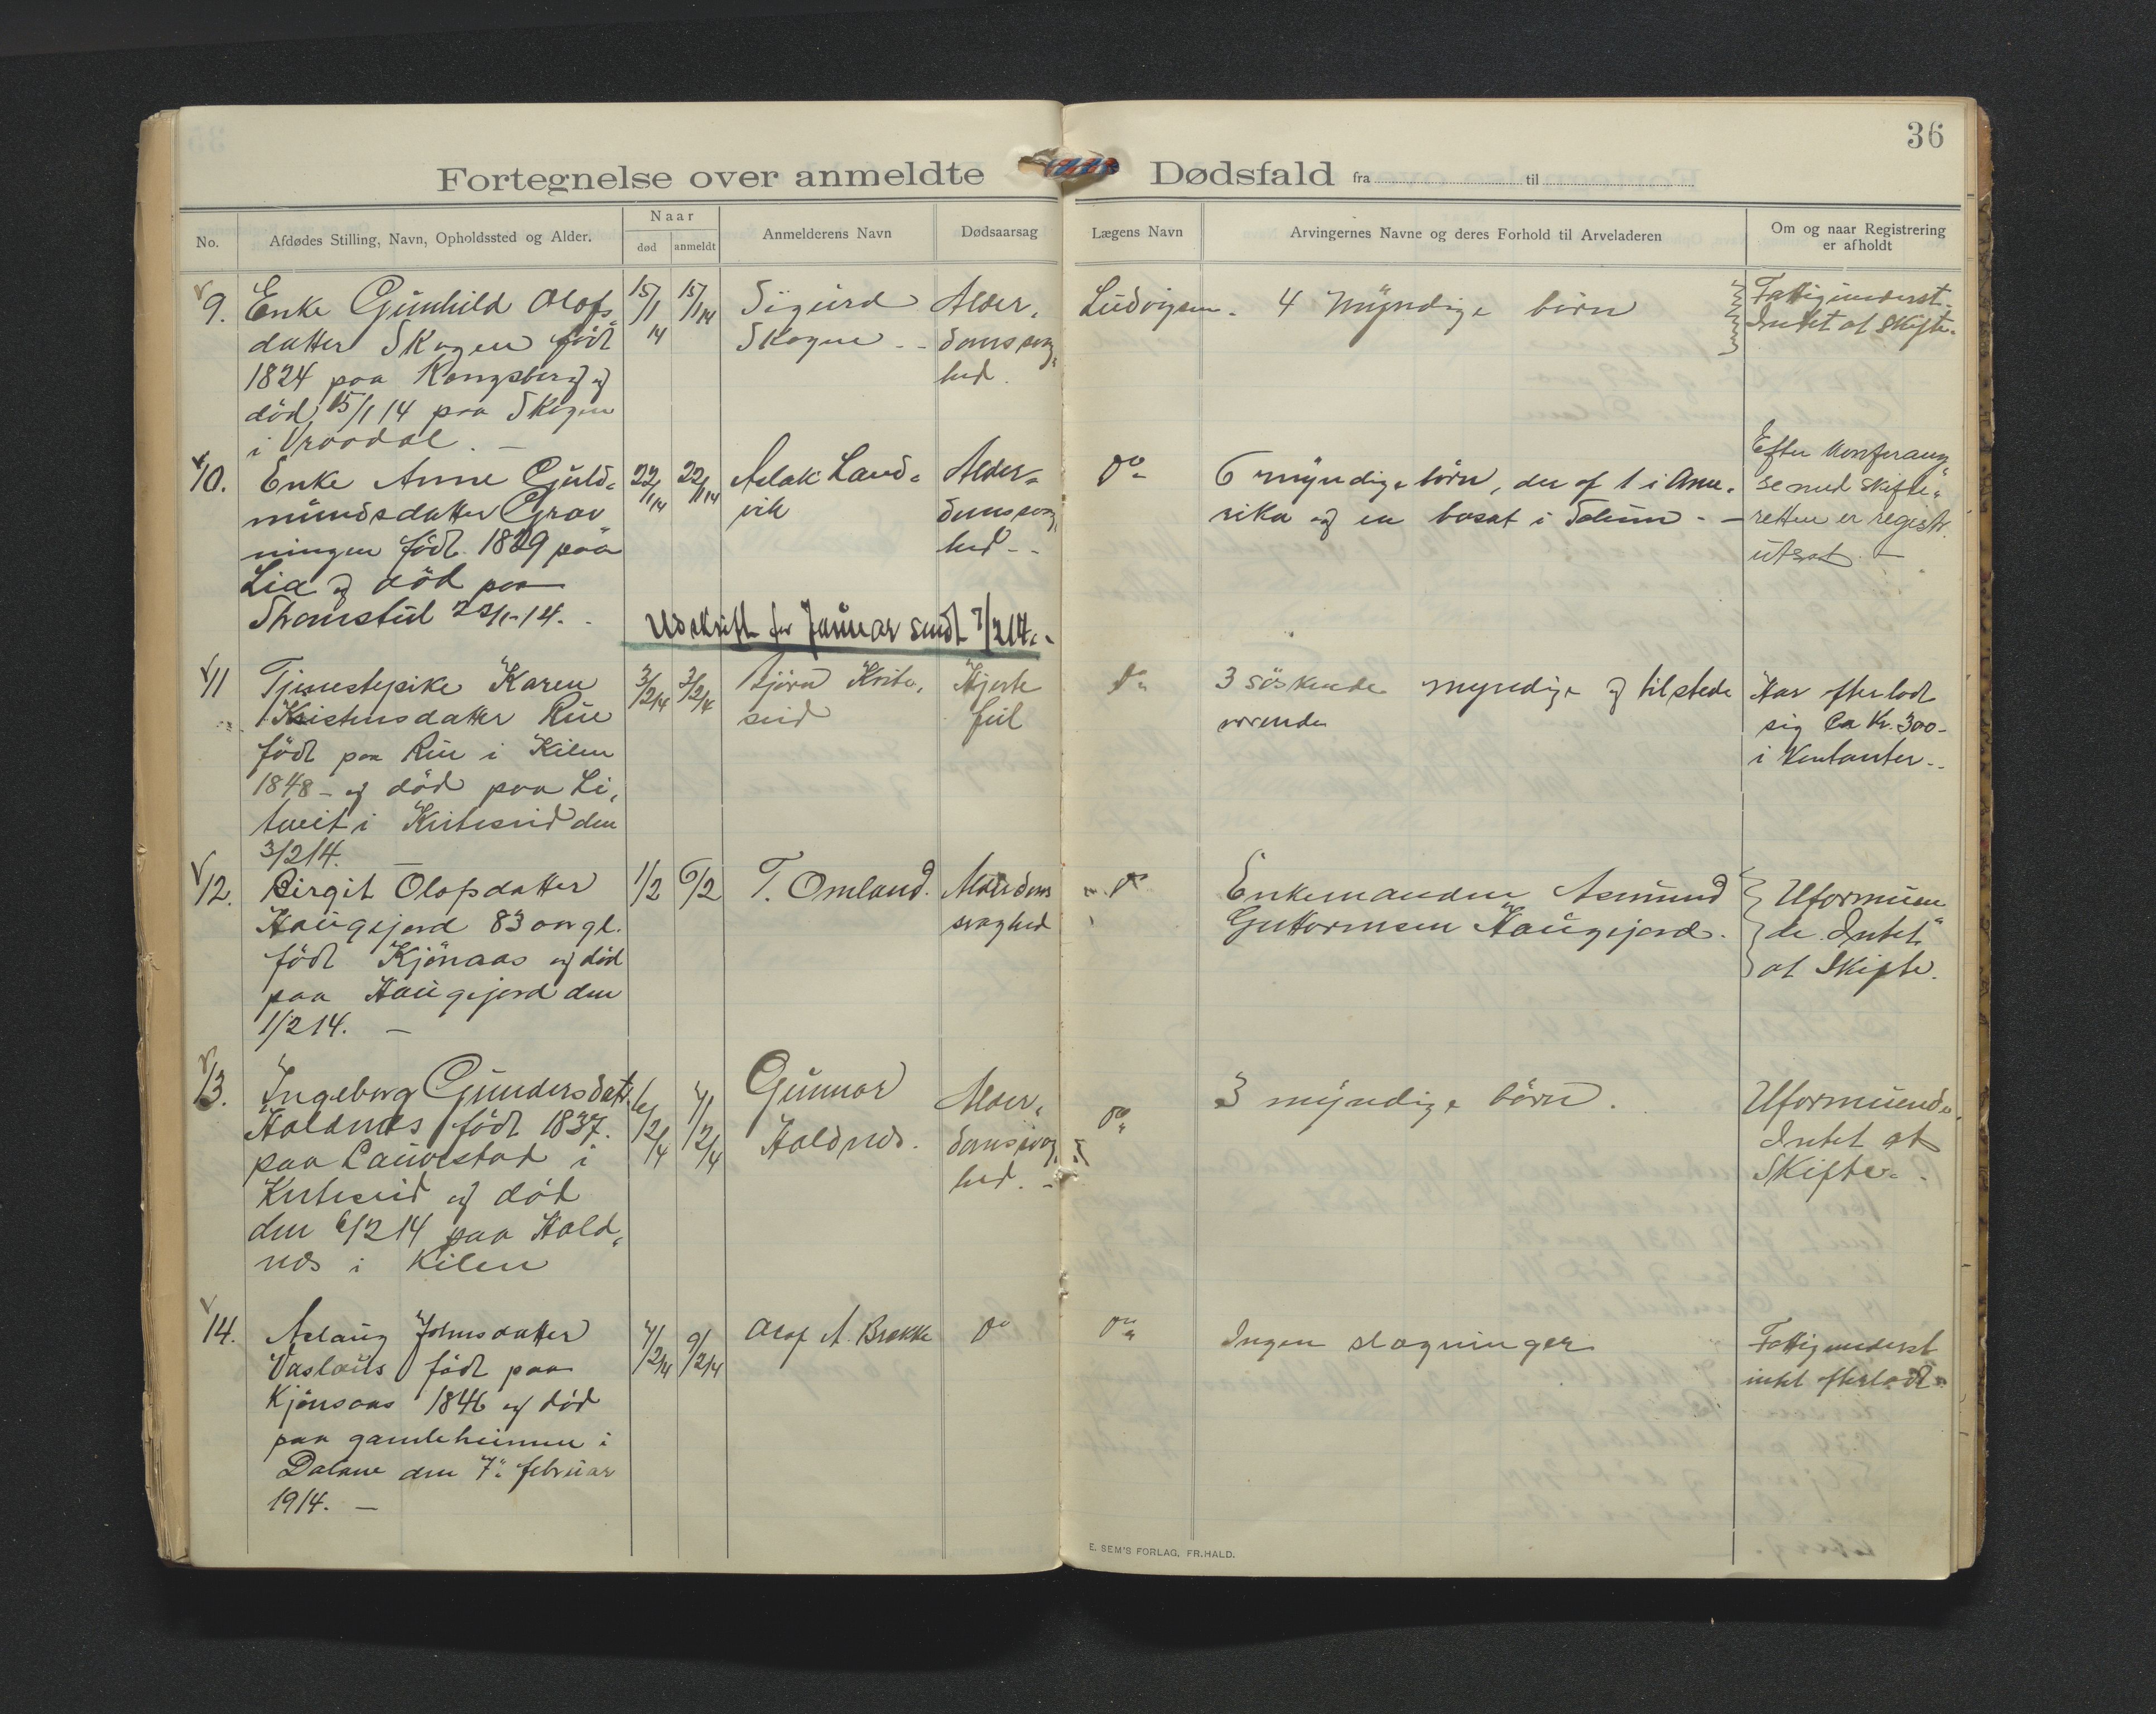 36
Fortegnelse over anmeldte Dødsfald fra til
No.
Afdødes Stilling, Navn, Opholdssted og Alder.
Naar
død
anmeldt
Anmelderens Navn
Dødsaarsag
Lægens Navn
Arvingernes Navne og deres Forhold til Arveladeren
Om og naar Registrering
er afholdt
9.
Enke Gunhild Olofs-
datter Skogen født
1824 paa Kongsberg og
død 15/1 14 paa Skogen
i Vraadal. —
15/1 14
15/1 14
Sigurd
Skogen
Alder-
domssvag-
hed.
Ludvigsen.
4 myndige børn
Fattigunderst.
Intet at Skifte.
10.
Enke Anne Guld-
mundsdatter Grav
ningen født 1829 paa
Lia og død paa
22/1-14.
22/1 14
22/1 14
Aslak Land-
vik
Alder-
domssvag-
hed
Do
6 myndige børn, der af 1 i Ame-
rika og en bosat i Solum. —
Efter Konferang
se med skifte-
retten er registr.
utsat. —
Udskrift for Januar sendt 7/2 14.
11
Tjenestepike Karen
Kristensdatter Rue
født paa Rue i Kilen
1848 – og død paa Li-
tveit i Kviteseid den
3/2 14. —
3/2 14
3/2 14
Bjørn Kvite-
seid
Hjerte
feil
Do
3 søskende myndige og tilstede
værende
Har efterladt
sig Ca Kr. 300-
i Kontanter.
12.
Birgit Olofsdatter
Haugejord 83 aar gl.
født Kjønaas og død
paa Haugejord den
1/2 14. —
1/2
6/2
T. Omland.
Alderdoms
svaghed
Do
Enkemanden Asmund
Guttormsen Haugejord.
Uformuen
de. Intet
at Skifte.
13.
Ingeborg Gundersdatt.
Haldnes født 1837.
paa Lauvstad i
Kviteseid og død
den 6/2 14 paa Hald-
nes i Kilen
6/2 14
7/2 14
Gunnar
Haldnes.
Alder-
domssvag-
hed.
Do
3 myndige børn.
Uformuende.
Intet at
Skifte.
14.
Aslaug Johnsdatter
Vaslaus født paa
Kjønsaas 1846 og død
paa gamleheimen i
Dalane den 7. februar
1914. —
7/2 14
9/2 14
Olaf A. Brekke
Do
Do
Ingen slagninger
Fattigunderst
intet efterladt.
E. SEM'S FORLAG, FR.HALD.